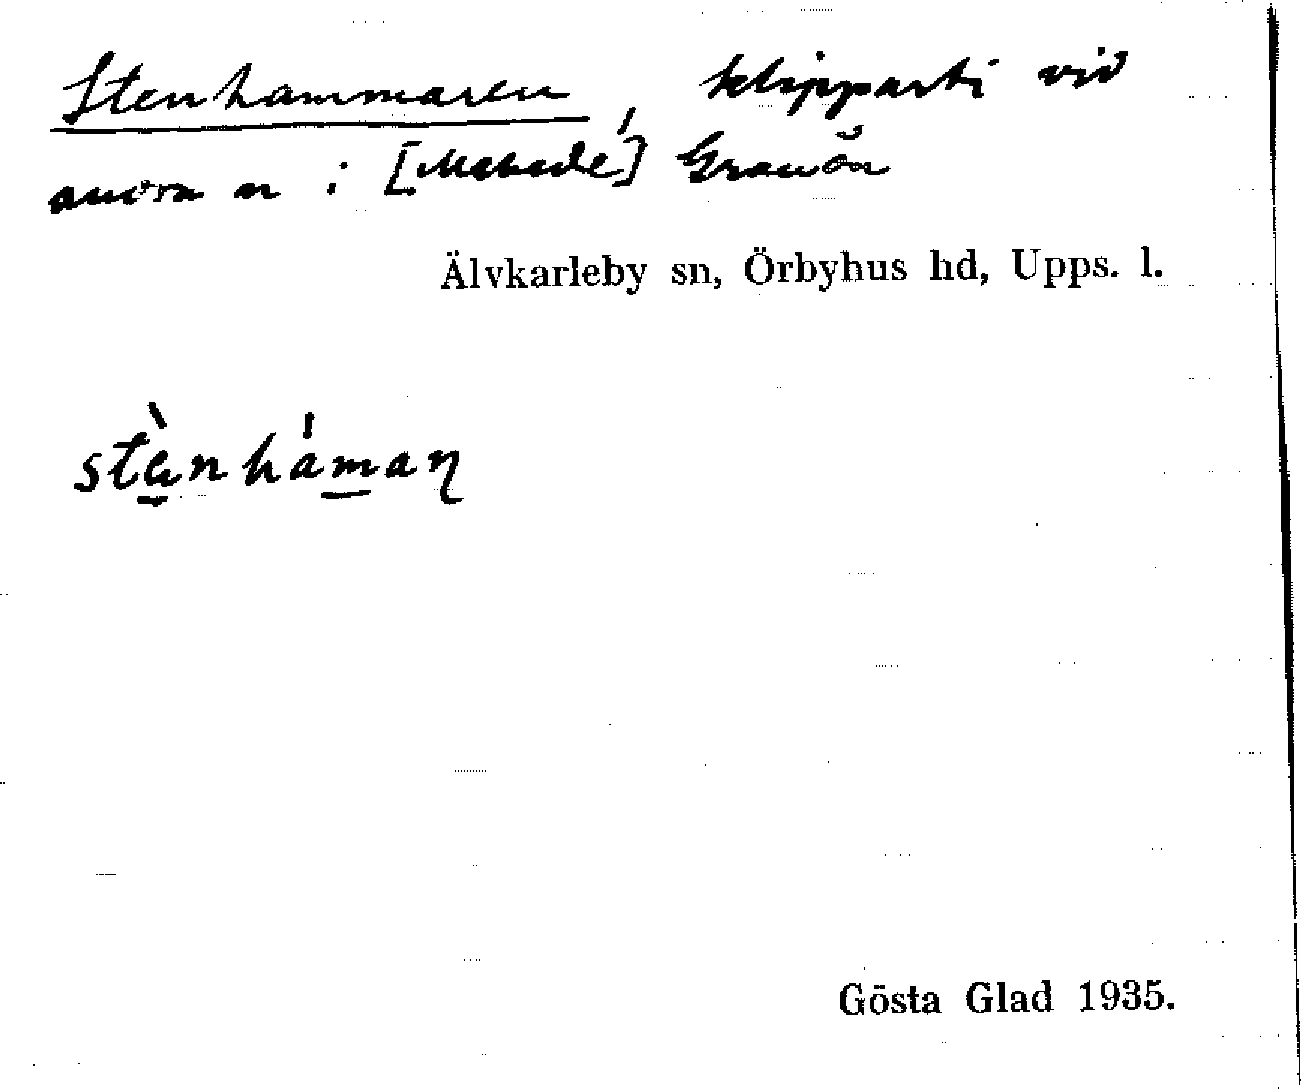 Stenhammaren, klipparti vid
norra  i [Marsde] Grauön
Älvkarleby sn, Örbyhus hd, Upps. l.
stè̱nháma̱aɳ
Gösta Glad 1935.